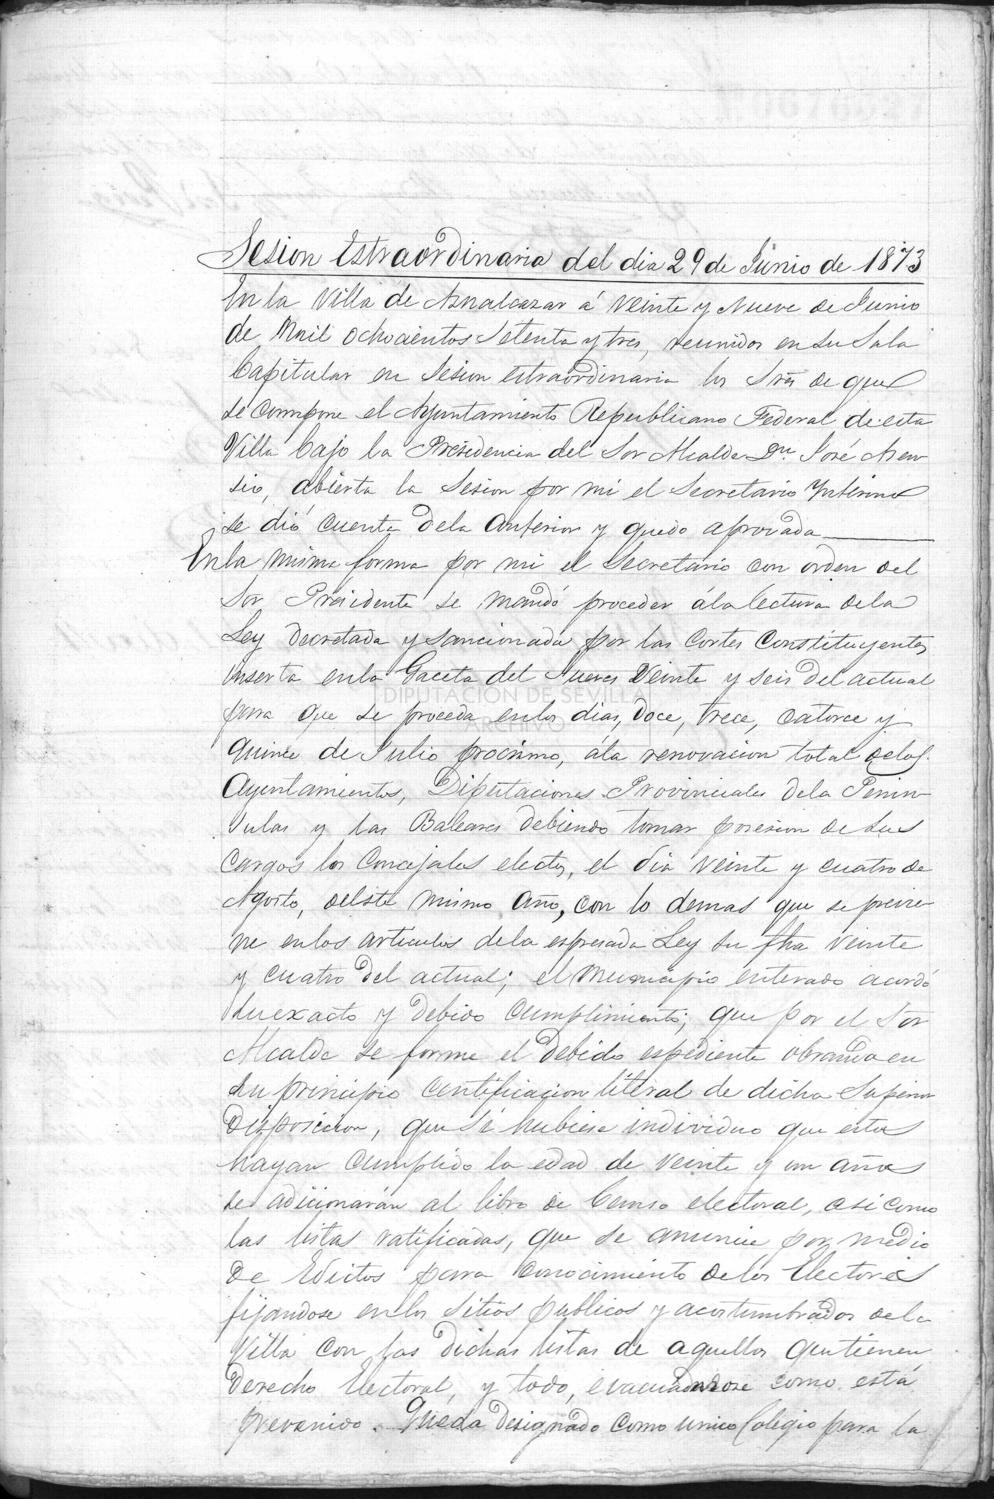 Sesion Estraordinaria del dia 29 de Junio de 1873
En la Villa de Aznalcazar á veinte y Nueve de Junio
de Mail Ochocientos Setenta y tres, reunidos en su Sala
Capitular en Sesion estraordinaria los Sres de que
se compone el Ayuntamiento Republicano Federal de esta
Villa bajo la Presidencia del Sor Alcalde Dn José Asen-
sio, abierta la Sesion por mi el Secretario Ynterino
se dió cuenta dela anterior y quedo aprovada
En la misma forma por mi el Secretario con orden del
Sor Presidente se mandó proceder ála lectura dela
Ley decretada y sancionada por las Cortes Constituyentes
inserta enla Gaceta del Jueves Veinte y seis del actual
DIPUTACION DE SEVILLA
ARCHIVO
para que se proceda enlos dias, doce, trece, catorce y
quince de Julio procsimo, ála renovacion total delos
Ayuntamientos, Diputaciones Provinciales dela Penin-
sulas y las Baleares debiendo tomar posesion de sus
cargos los Concejales electos, el dia veinte y cuatro de
Agosto, deeste mismo año, con lo demas que se previe-
ne enlos articulos dela espresada Ley su fha veinte
y cuatro del actual; el Municipio enterado acordó
su exacto y debido cumplimiento; que por el Sor
Alcalde se forme el debido espediente obrando en
su principio certificacion literal de dicha Superior
Disposicion, que si hubiese individuo que estos
hayan cumplido la edad de veinte y un años
se adicionarán al libro de Censo electoral, asi como
las listas ratificadas, que se anuncie por medio
de Edictos para conocimiento delos Electores
fijandose enlos Sitios publicos y acostumbrados dela
Villa con las dichas listas de aquellos quetienen
derecho Electoral, y todo, evacuandose como está
prevenido. Queda designado como unico Colegio para la